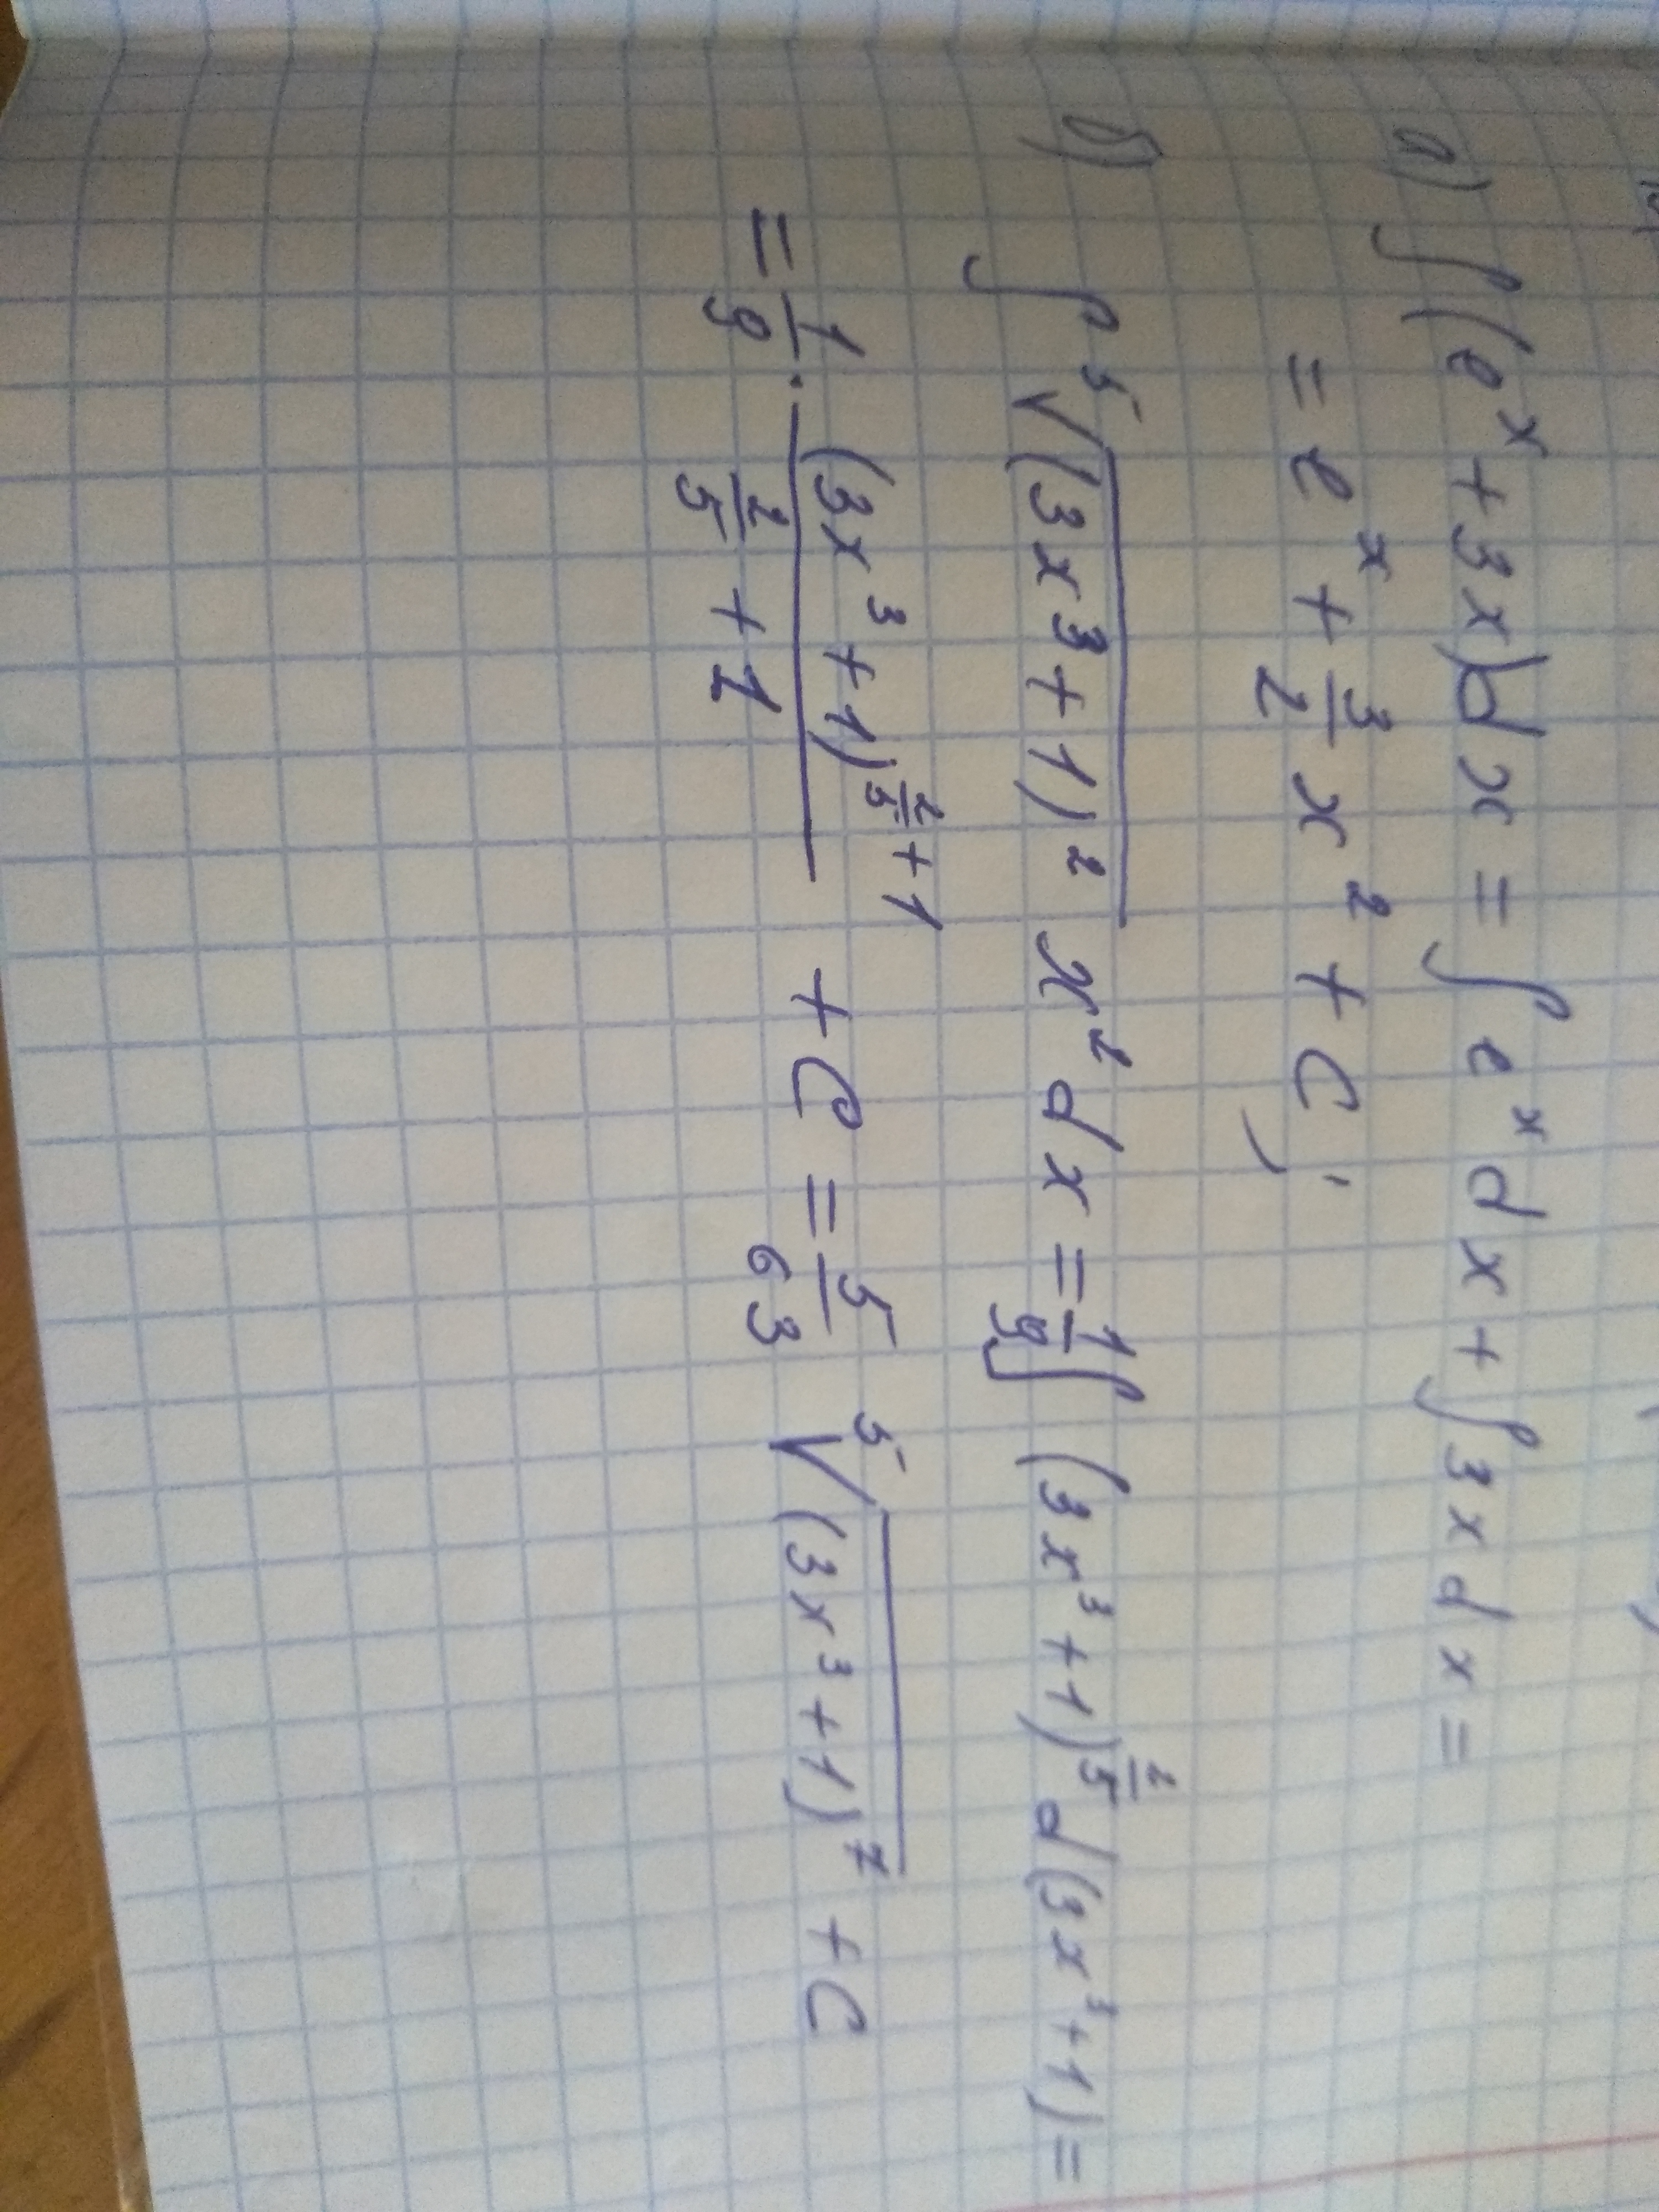 а) ∫(e^x + 3x)dx = ∫e^x dx + ∫3x dx =
= e^x + 3/2 x^2 + C;
б) ∫ ⁵√((3x^3 + 1)^2) x^2 dx = 1/9 ∫(3x^3 + 1)^(2/5) d(3x^3 + 1) =
= 1/9 · (3x^3 + 1)^(2/5 + 1) / (2/5 + 1) + C = 5/63 ⁵√((3x^3 + 1)^7) + C